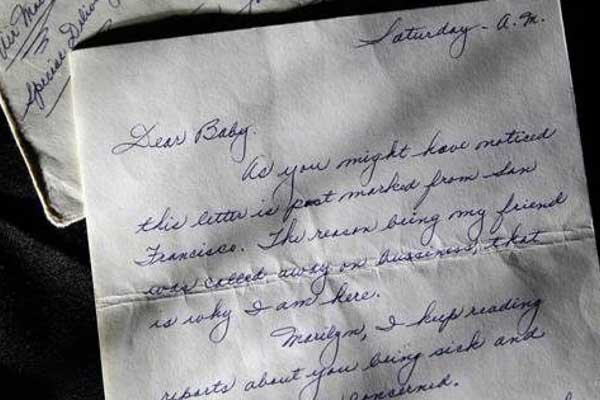 Air Mail
Special Delivery
Saturday - A.M.
Dear Baby.
As you might have noticed
this letter is post marked from San
Francisco. The reason being my friend
was called away on bussiness, that
is why I am here.
Marilyn, I keep reading
reports about you being sick and
concerned.